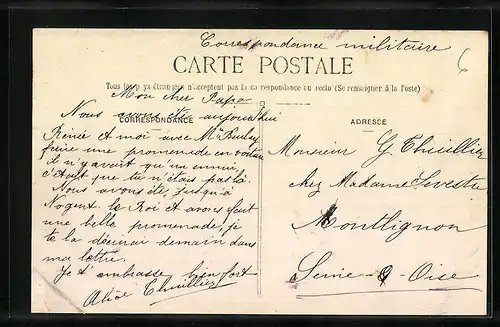 Correspondance militaire
CARTE POSTALE
Tous les pays étrangers n'acceptent pas la correspondance au recto (Se renseigner à la Poste)
Mon cher Papa
CORRESPONDANCE
Nous avons été aujourd'hui
Renée et moi avec Mr
faire une promenade en voiture
il n'y avait qu'un ennui,
c'était que tu n'étais pas là.
Nous avons été jusqu'à
Nogent le Roi et avons fait
une belle promenade, je
te la décrirai demain dans
ma lettre.
Je t'embrasse bien fort
Alice Thuillier
ADRESSE
Monsieur G. Thuillier
chez Madame Sevestre
Montlignon
Seine & Oise
6